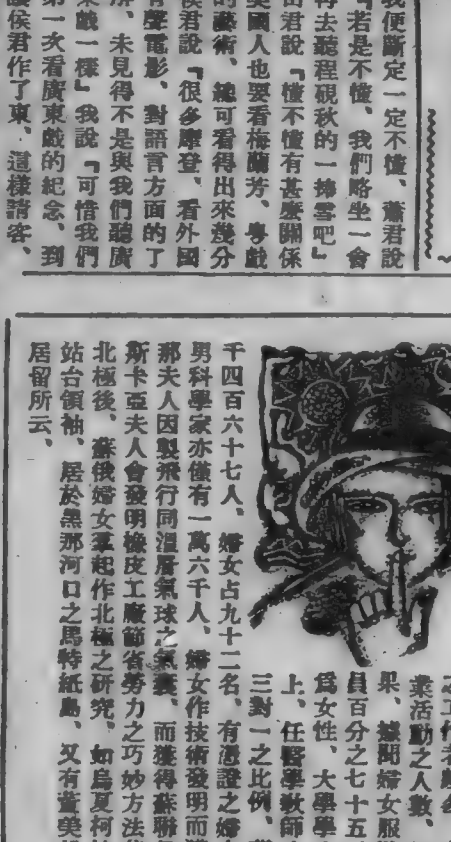 我便斷定一定不懂、蕭君說
『若是不懂、我們略坐一會
再去聽程硯秋的一捧雪吧』
君說『懂不懂有甚麼關係
美國人也要看梅蘭芳、粵戲
的藝術、總可看得出來幾分
侯君說『很多摩登、看外國
有聲電影、對語言方面的了
解、未見得不是與我們聽廣
東戲一樣』我說『可惜我們
第一次看廣東戲的紀念、到
讓侯君作了東、這樣請客、
之工作者
業活動之人數、
果、據聞婦女服
員百分之七十五
爲女性、大學學
上、任醫學教師
三對一之比例、
千四百六十七人、婦女占九十二名、有憑證之婦
男科學家亦僅有一萬六千人、婦女作技術發明而
那夫人因製飛行同溫層氣球之氣囊、而獲得蘇聯
斯卡亞夫人會發明橡皮工廠節省勞力之巧妙方法
北極後、蘇俄婦女羣起作北極之研究、如烏夏柯
站台領袖、居於黑那河口之馬特紙島、又有黃美
居留所云、